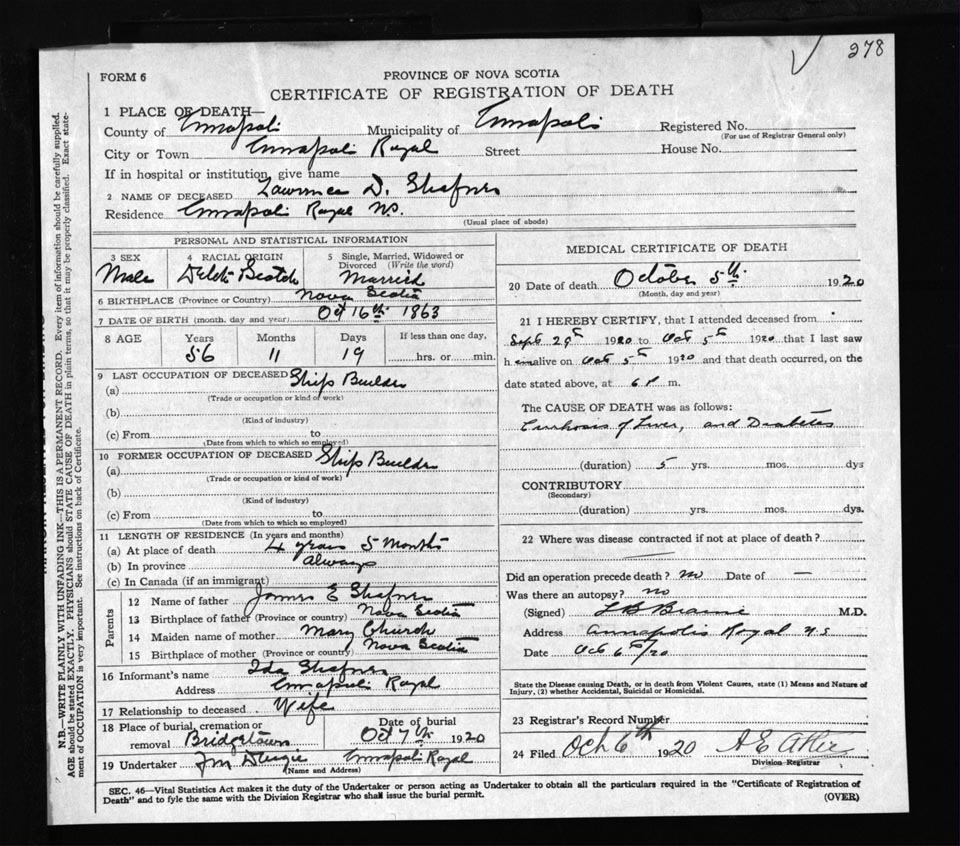 278
FORM 6
PROVINCE OF NOVA SCOTIA
CERTIFICATE OF REGISTRATION OF DEATH
1 PLACE OF DEATH—
County of Annapolis Municipality of Annapolis Registered No.
(For use of Registrar General only)
City or Town Annapolis Royal Street House No.
If in hospital or institution, give name
2 NAME OF DECEASED Lawrence D. Shafner
Residence Annapolis Royal N.S.
(Usual place of abode)
PERSONAL AND STATISTICAL INFORMATION
3 SEX 4 RACIAL ORIGIN 5 Single, Married, Widowed or Divorced (Write the word)
Male Dutch Scotch Married
6 BIRTHPLACE (Province or Country) Nova Scotia
7 DATE OF BIRTH (month, day and year) Oct 16th 1863
8 AGE Years Months Days If less than one day,
56 11 19 hrs. or min.
9 LAST OCCUPATION OF DECEASED Ship Builder
(a)
(Trade or occupation or kind of work)
(b)
(Kind of industry)
(c) From to
(Date from which to which so employed)
10 FORMER OCCUPATION OF DECEASED Ship Builder
(a)
(Trade or occupation or kind of work)
(b)
(Kind of industry)
(c) From to
(Date from which to which so employed)
11 LENGTH OF RESIDENCE (In years and months)
(a) At place of death 4 years 5 Months
(b) In province always
(c) In Canada (if an immigrant)
Parents
12 Name of father James E Shafner
13 Birthplace of father (Province or country) Nova Scotia
14 Maiden name of mother Mary Church
15 Birthplace of mother (Province or country) Nova Scotia
16 Informant's name Ida Shafner
Address Annapolis Royal
17 Relationship to deceased Wife
18 Place of burial, cremation or Date of burial
removal Bridgetown Oct 7th 1920
19 Undertaker Annapolis Royal
(Name and Address)
MEDICAL CERTIFICATE OF DEATH
20 Date of death October 5th 1920
(Month, day and year)
21 I HEREBY CERTIFY, that I attended deceased from
Sept 29th 1920 to Oct 5th 1920 that I last saw
h im alive on Oct 5th 1920 and that death occurred, on the
date stated above, at 6 P m.
The CAUSE OF DEATH was as follows:
Cirrhosis of Liver, and Diabetes
(duration) 5 yrs. mos. dys
CONTRIBUTORY
(Secondary)
(duration) yrs. mos. dys.
22 Where was disease contracted if not at place of death?
Did an operation precede death? no Date of —
Was there an autopsy? no
(Signed) L B Braine M.D.
Address Annapolis Royal N S
Date Oct 6th/20
State the Disease causing Death, or in death from Violent Causes, state (1) Means and Nature of
Injury, (2) whether Accidental, Suicidal or Homicidal.
23 Registrar's Record Number
24 Filed Oct 6th 1920 A E Atlee
Division Registrar
SEC. 46—Vital Statistics Act makes it the duty of the Undertaker or person acting as Undertaker to obtain all the particulars required in the "Certificate of Registration of
Death" and to fyle the same with the Division Registrar who shall issue the burial permit.
(OVER)
N.B.—WRITE PLAINLY WITH UNFADING INK—THIS IS A PERMANENT RECORD. Every item of information should be carefully supplied.
AGE should be stated EXACTLY. PHYSICIANS should STATE CAUSE OF DEATH in plain terms, so that it may be properly classified. Exact state-
ment of OCCUPATION is very important. See instructions on back of Certificate.